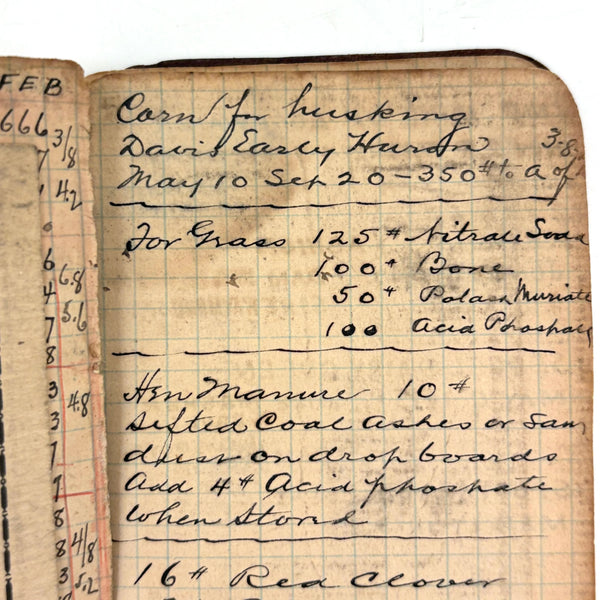 FEB
666
3/8
7
4.2
6
6.8
4
5.6
7
8
3
4.8
3
7
7
8
8 4/8
3 5.2
Corn for husking
Davis Early Huron 3-8-
May 10 Sep 20 - 350 # to A of
For Grass 125 # Nitrate Soda
100 # Bone
50 # Potash Muriate
100 Acid Phosphate
Hen Manure 10 #
Sifted Coal Ashes or Saw
dust on drop boards
Add 4 # Acid phosphate
When Stored
16 # Red Clover